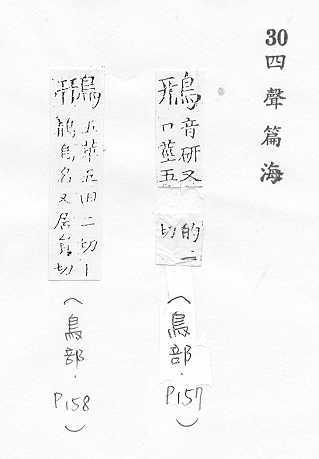 30 四聲篇海
鳽 音研又
口莖五
的二
切
（鳥部．P157）
鳽 五莖五田二切丨
鶄鳥名又居切
（鳥部．P158）